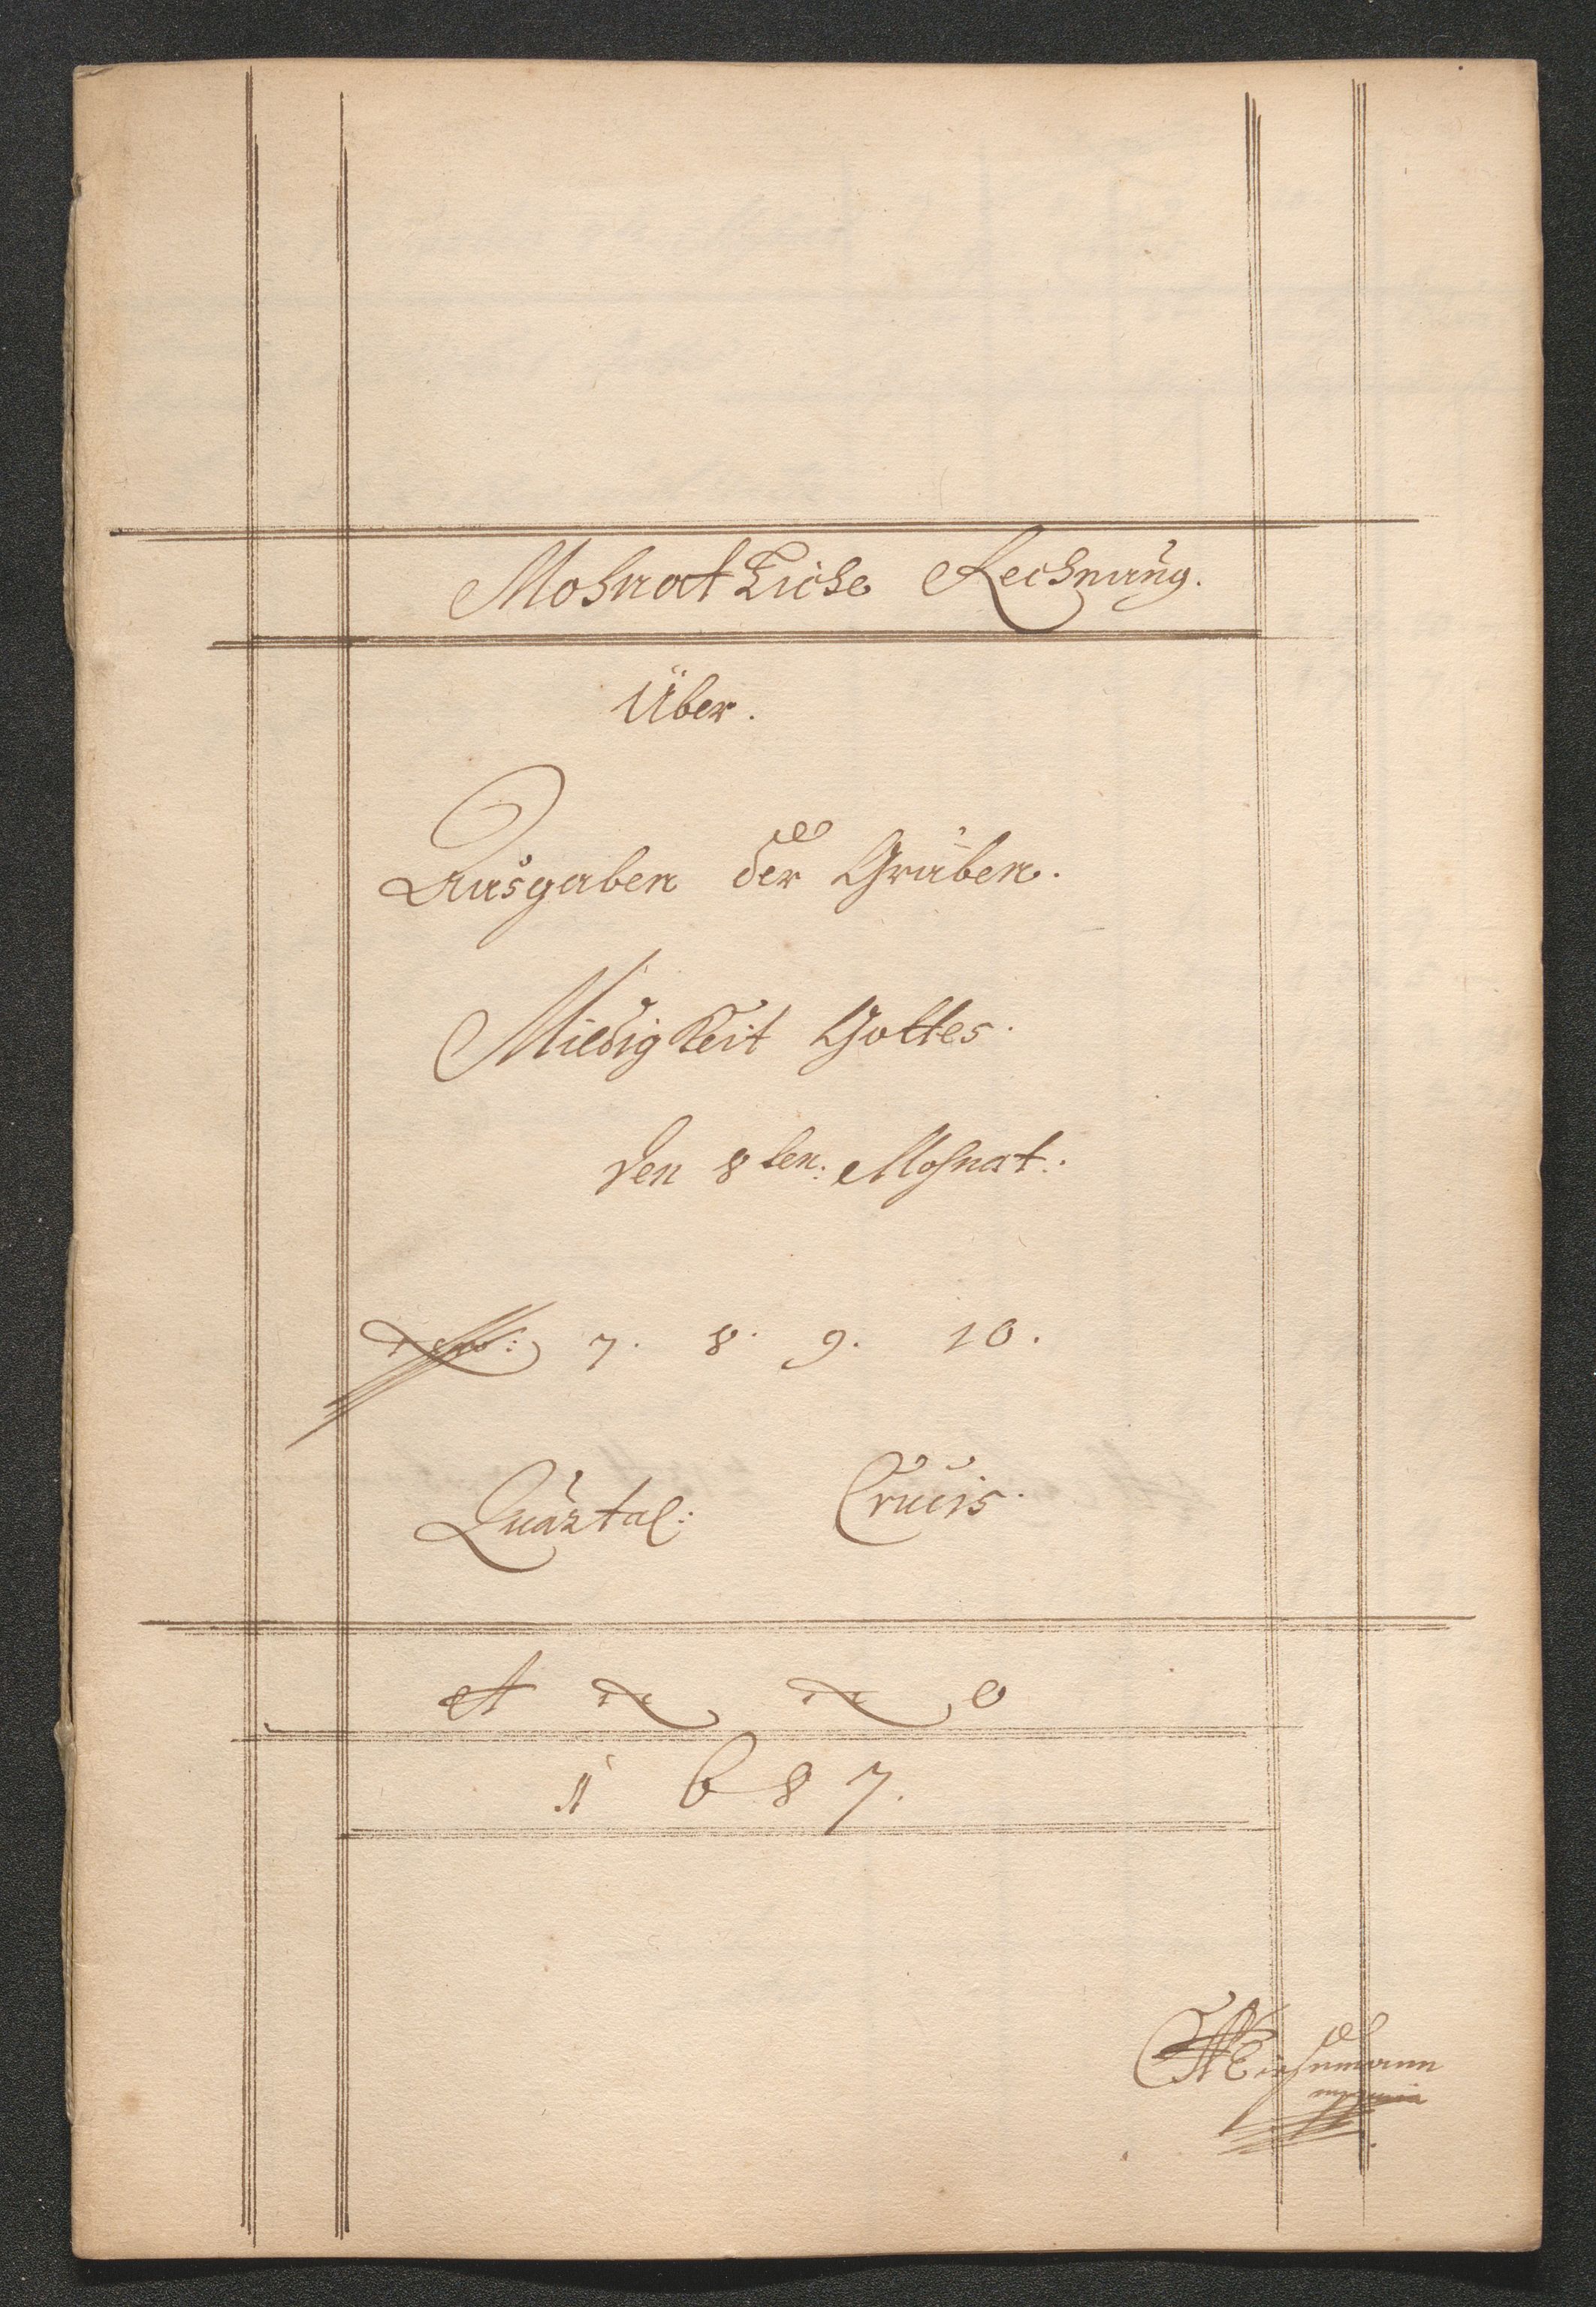 Mohnat Liche Rechnung.
Über.
Ausgaben der Gruben.
Mildigkeit Gottes.
Den 8 ten: Mohnat:.
7. 8. 9. 10.
Quartal: Crucis.
A n n o
1 6 8 7.